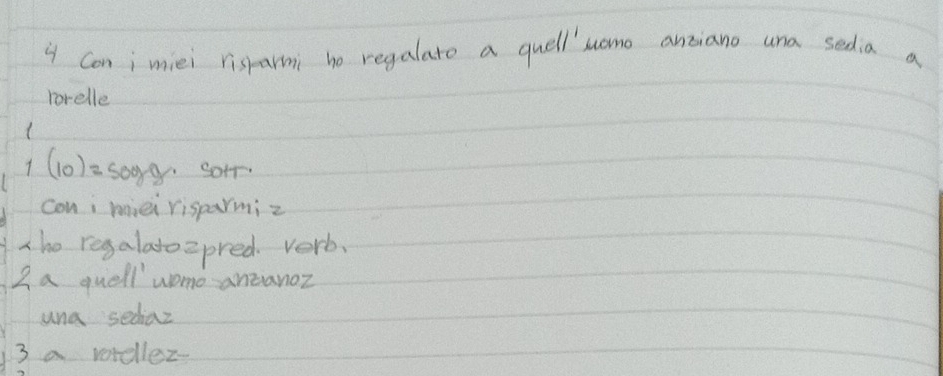 4 Con i miei risparmi ho regalato a quell'uomo anziano una sedia a
rorelle
1 (io)=sogg. sott.
con i miei risparmi=
ho regalato=pred. verb.
2 a quell'uomo anziano=
una sedia=
3 a rotelle=